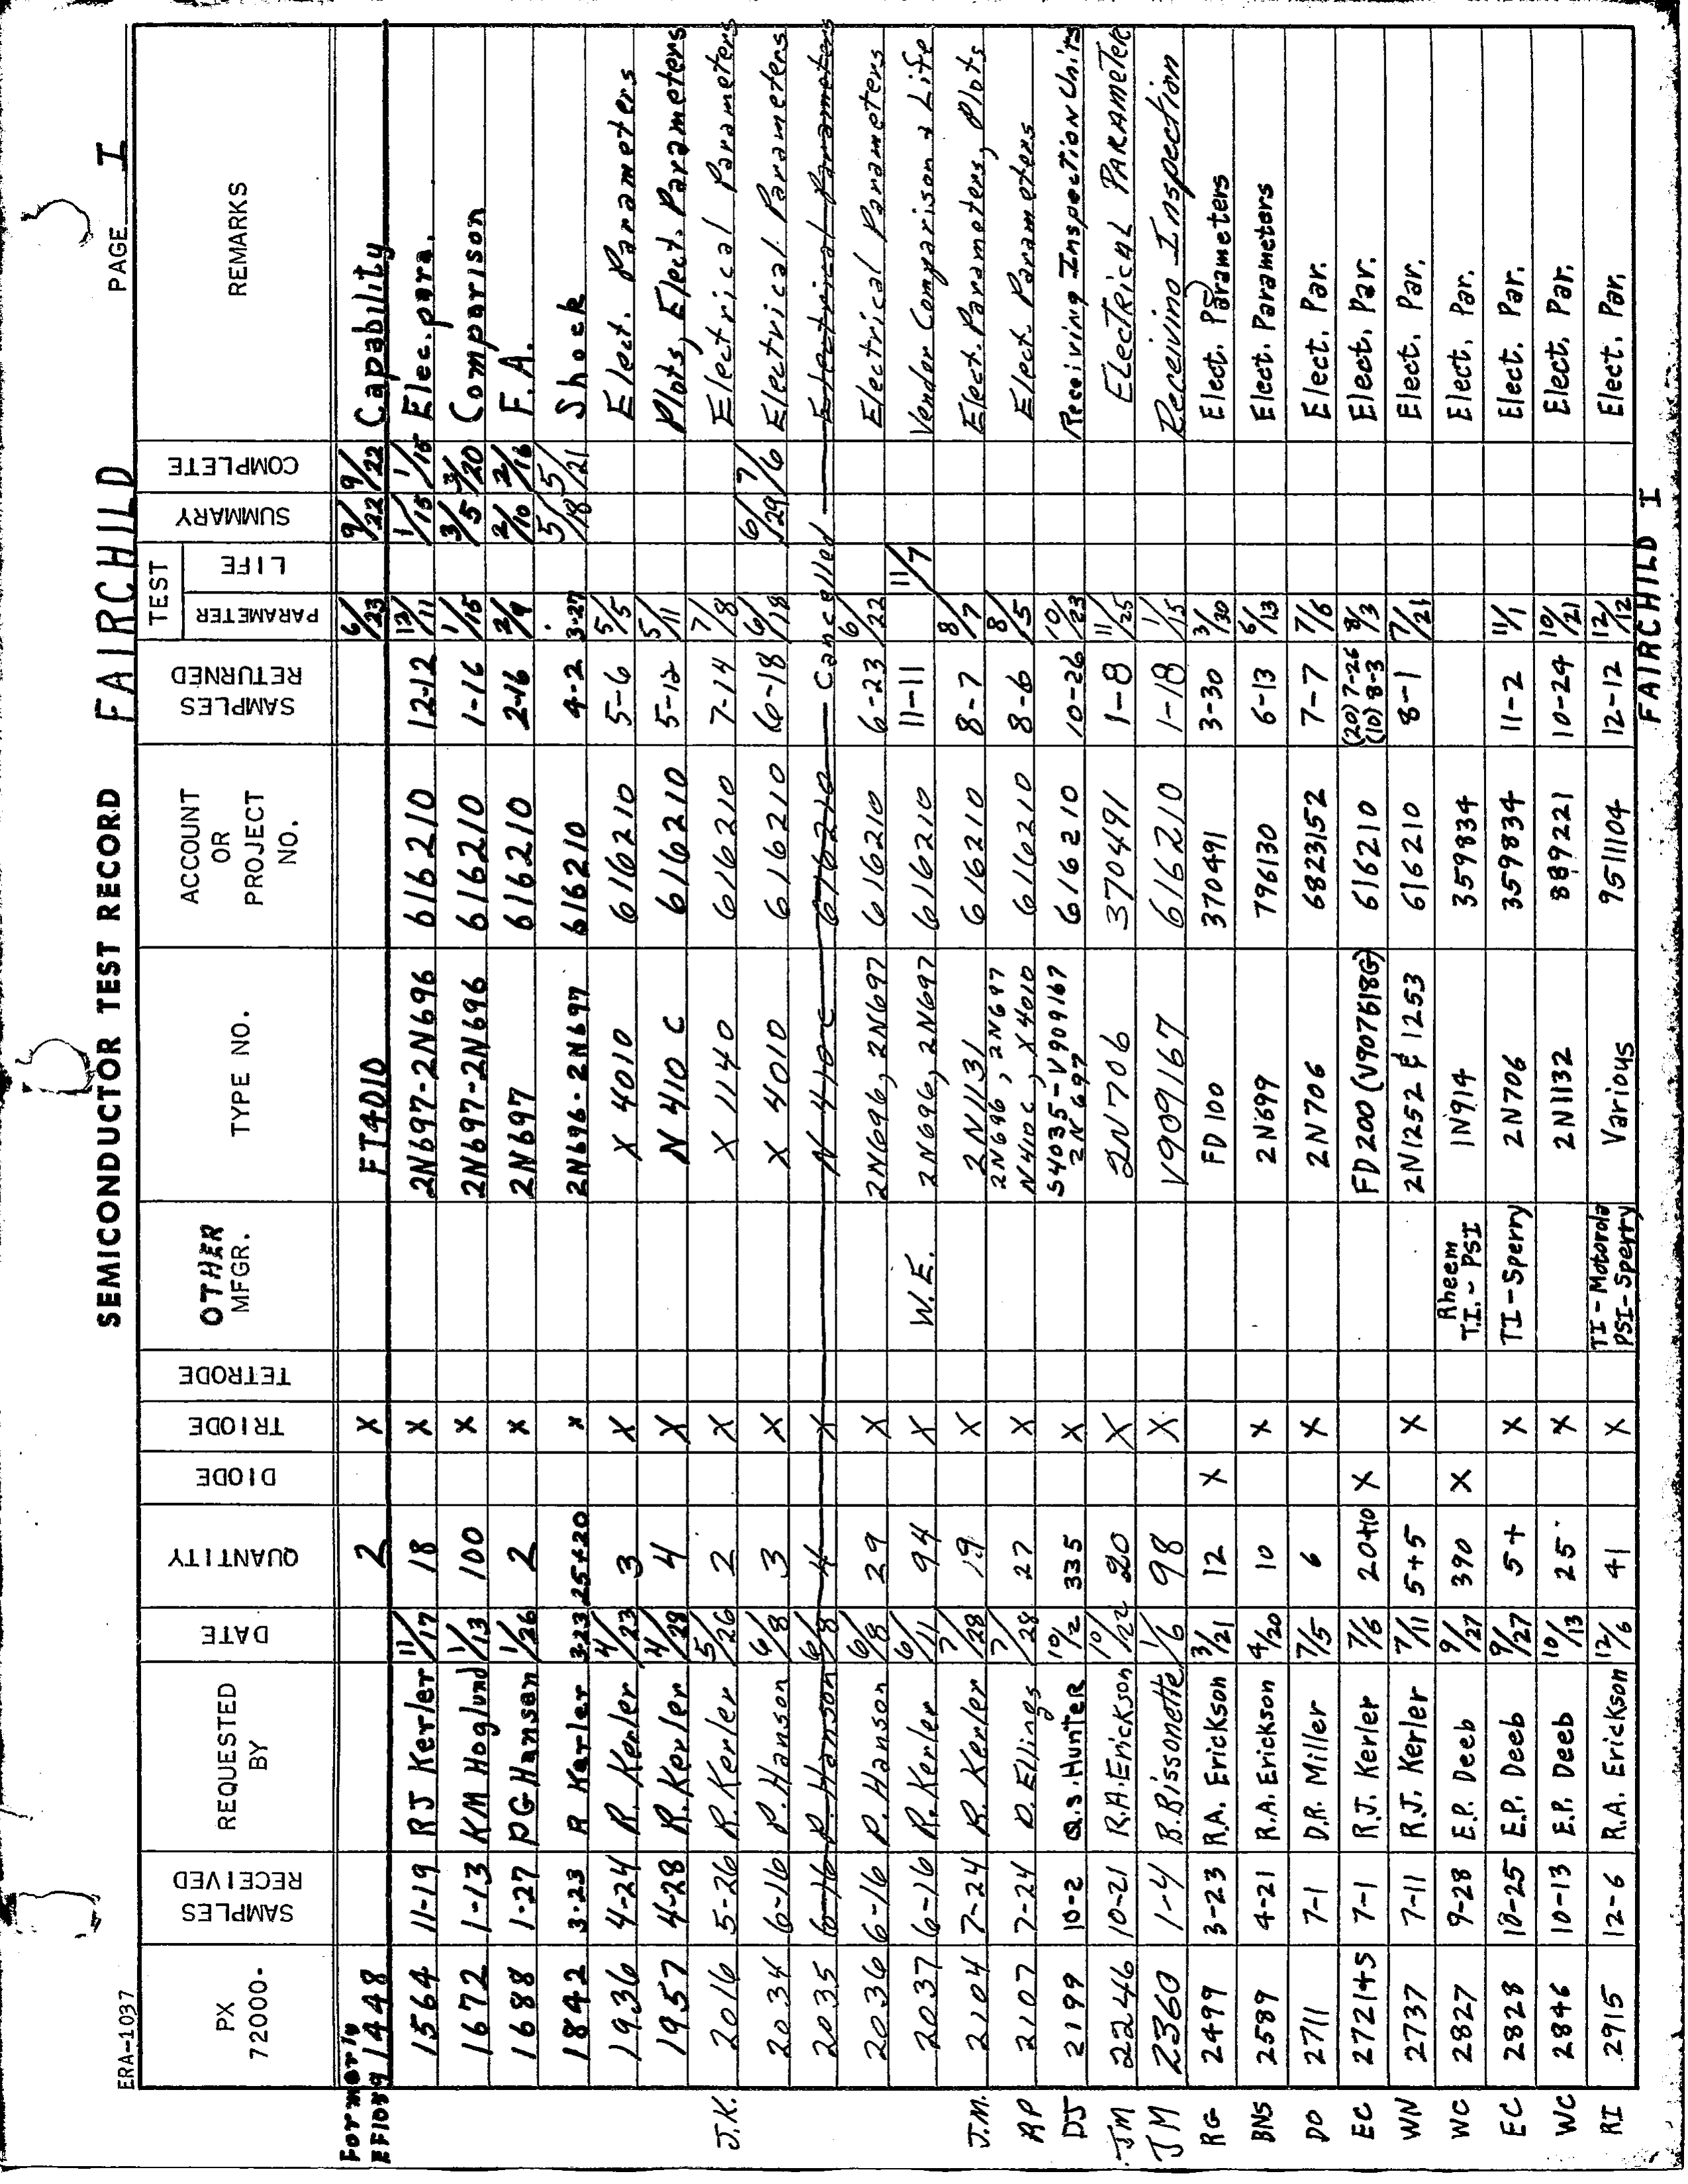 ERA-1037
SEMICONDUCTOR TEST RECORD FAIRCHILD PAGE I
PX 72000- SAMPLES RECEIVED REQUESTED BY DATE QUANTITY DIODE TRIODE TETRODE OTHER MFGR. TYPE NO. ACCOUNT OR PROJECT NO. SAMPLES RETURNED TEST PARAMETER LIFE SUMMARY COMPLETE REMARKS
Formerly
1448 2 X FT4010 6/23 9/22 9/22 Capability
1564 11-19 RJ Kerler 11/17 18 X 2N697-2N696 616210 12-12 12/11 1/15 1/15 Elec. para.
1672 1-13 KM Hoglund 1/13 100 X 2N697-2N696 616210 1-16 1/15 3/5 3/20 Comparison
1688 1-27 PG Hansen 1/26 2 X 2N697 616210 2-16 2/9 2/10 2/16 F.A.
1842 3-23 R Kerler 3-23 25+20 X 2N696-2N697 616210 4-2 3-27 5/18 5/21 Shock
1936 4-24 R. Kerler 4/23 3 X X 4010 616210 5-6 5/5 Elect. Parameters
1957 4-28 R. Kerler 4/28 4 X N 410 C 616210 5-12 5/11 Plots, Elect. Parameters
J.K. 2016 5-26 R. Kerler 5/26 2 X X 1140 616210 7-14 7/8 Electrical Parameters
2034 6-16 P. Hanson 6/8 3 X X 4010 616210 6-18 6/18 6/29 7/6 Electrical Parameters
2035 6-16 P. Hanson 6/8 4 X N 410 C 616210 Cancelled Electrical Parameters
2036 6-16 P. Hanson 6/8 29 X 2N696, 2N697 616210 6-23 6/22 Electrical Parameters
2037 6-16 R. Kerler 6/11 94 X W.E. 2N696, 2N697 616210 11-11 11/7 Vendor Comparison & Life
J.M. 2104 7-24 R. Kerler 7/28 19 X 2N1131 616210 8-7 8/7 Elect. Parameters, Plots
2N696, 2N697
RP 2107 7-24 D. Ellings 7/28 27 X N410C, X4010 616210 8-6 8/5 Elect Parameters
DJ 2199 10-2 Q.S. Hunter 10/2 335 X S4035-V909167 2N697 616210 10-26 10/23 Receiving Inspection Units
JM 2246 10-21 R.A. Erickson 10/12 20 X 2N706 370491 1-8 11/25 Electrical PARAMETER
JM 2360 1-4 B. Bissonette 1/6 98 X V909167 616210 1-18 1/15 Receiving Inspection
RG 2499 3-23 R.A. Erickson 3/21 12 X FD100 370491 3-30 3/30 Elect. Parameters
BNS 2589 4-21 R.A. Erickson 4/20 10 X 2N699 796130 6-13 6/13 Elect. Parameters
DO 2711 7-1 D.R. Miller 7/5 6 X 2N706 6823152 7-7 7/6 Elect. Par.
EC 2721+5 7-1 R.J. Kerler 7/6 20+10 X FD200 (V907618G) 616210 (20) 7-26 (10) 8-3 8/3 Elect. Par.
WN 2737 7-11 R.J. Kerler 7/11 5+5 X 2N1252 & 1253 616210 8-1 7/21 Elect. Par.
WC 2827 9-28 E.P. Deeb 9/27 390 X Rheem T.I.-PSI 1N914 359834 Elect. Par.
EC 2828 10-25 E.P. Deeb 9/27 5+ X TI-Sperry 2N706 359834 11-2 11/1 Elect. Par.
WC 2846 10-13 E.P. Deeb 10/13 25 X 2N1132 889221 10-24 10/21 Elect. Par.
RI 2915 12-6 R.A. Erickson 12/6 41 X TI-Motorola PSI-Sperry Various 9511104 12-12 12/12 Elect. Par.
FAIRCHILD I